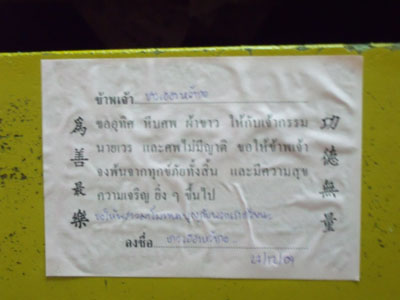 ข้าพเจ้า
ขออุทิศ หีบศพ ผ้าขาว ให้กับเจ้ากรรม
นายเวร และศพไม่มีญาติ ขอให้ข้าพเจ้า
จงพ้นจากทุกข์ภัยทั้งสิ้น และมีความสุข
ความเจริญ ยิ่ง ๆ ขึ้นไป
ลงชื่อ
為善最樂
功德無量